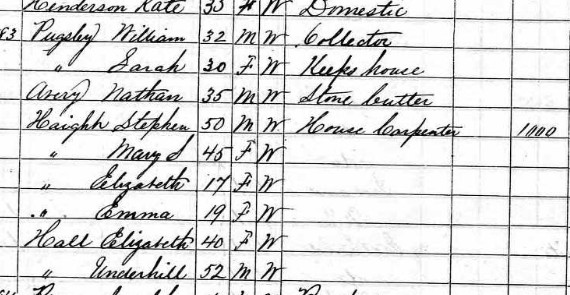 Henderson Kate 33 F W Domestic
83 Pugsley William 32 M W Collector
" Sarah 30 F W Keeps house
Avery Nathan 35 M W Stone Cutter
Haight Stephen 50 M W House Carpenter 1000
" Mary S 45 F W
" Elizabeth 17 F W
" Emma 19 F W
Hall Elizabeth 40 F W
" Underhill 52 M W